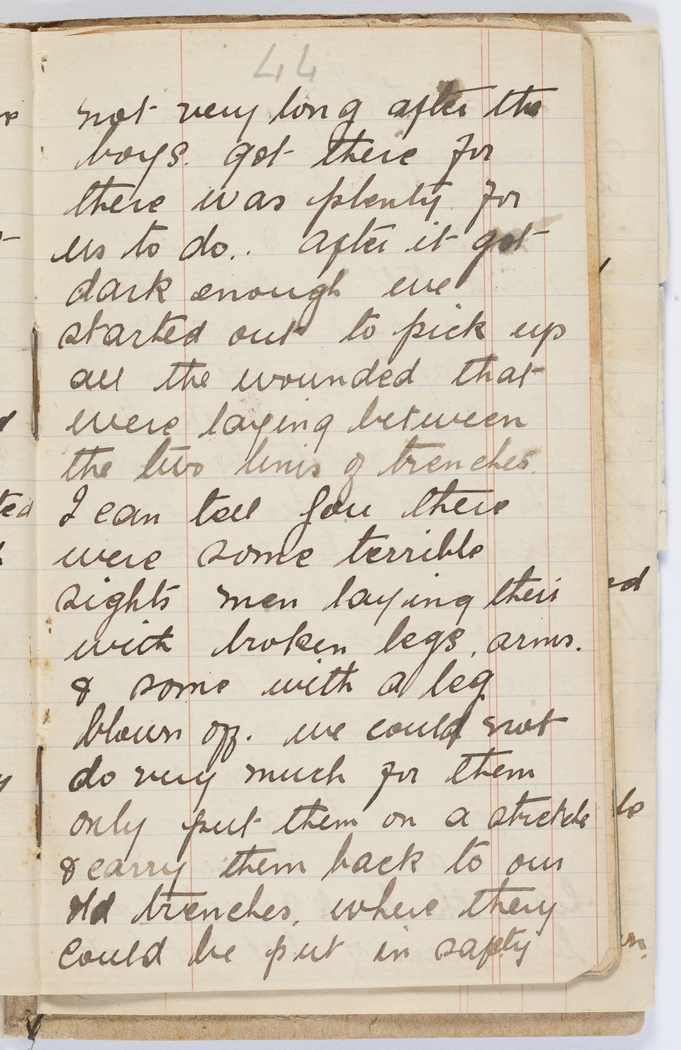 44
not very long after the
boys. got there for
there was plenty for
us to do.. after it got
dark enough we
started out to pick up
all the wounded that
were laying between
the two lines of trenches.
I can tell you there
were some terrible
sights men laying their
with broken legs, arms.
& some with a leg
blown off. we could not
do very much for them
only put them on a stretche
& carry them back to our
old trenches, where they
could be put in safty